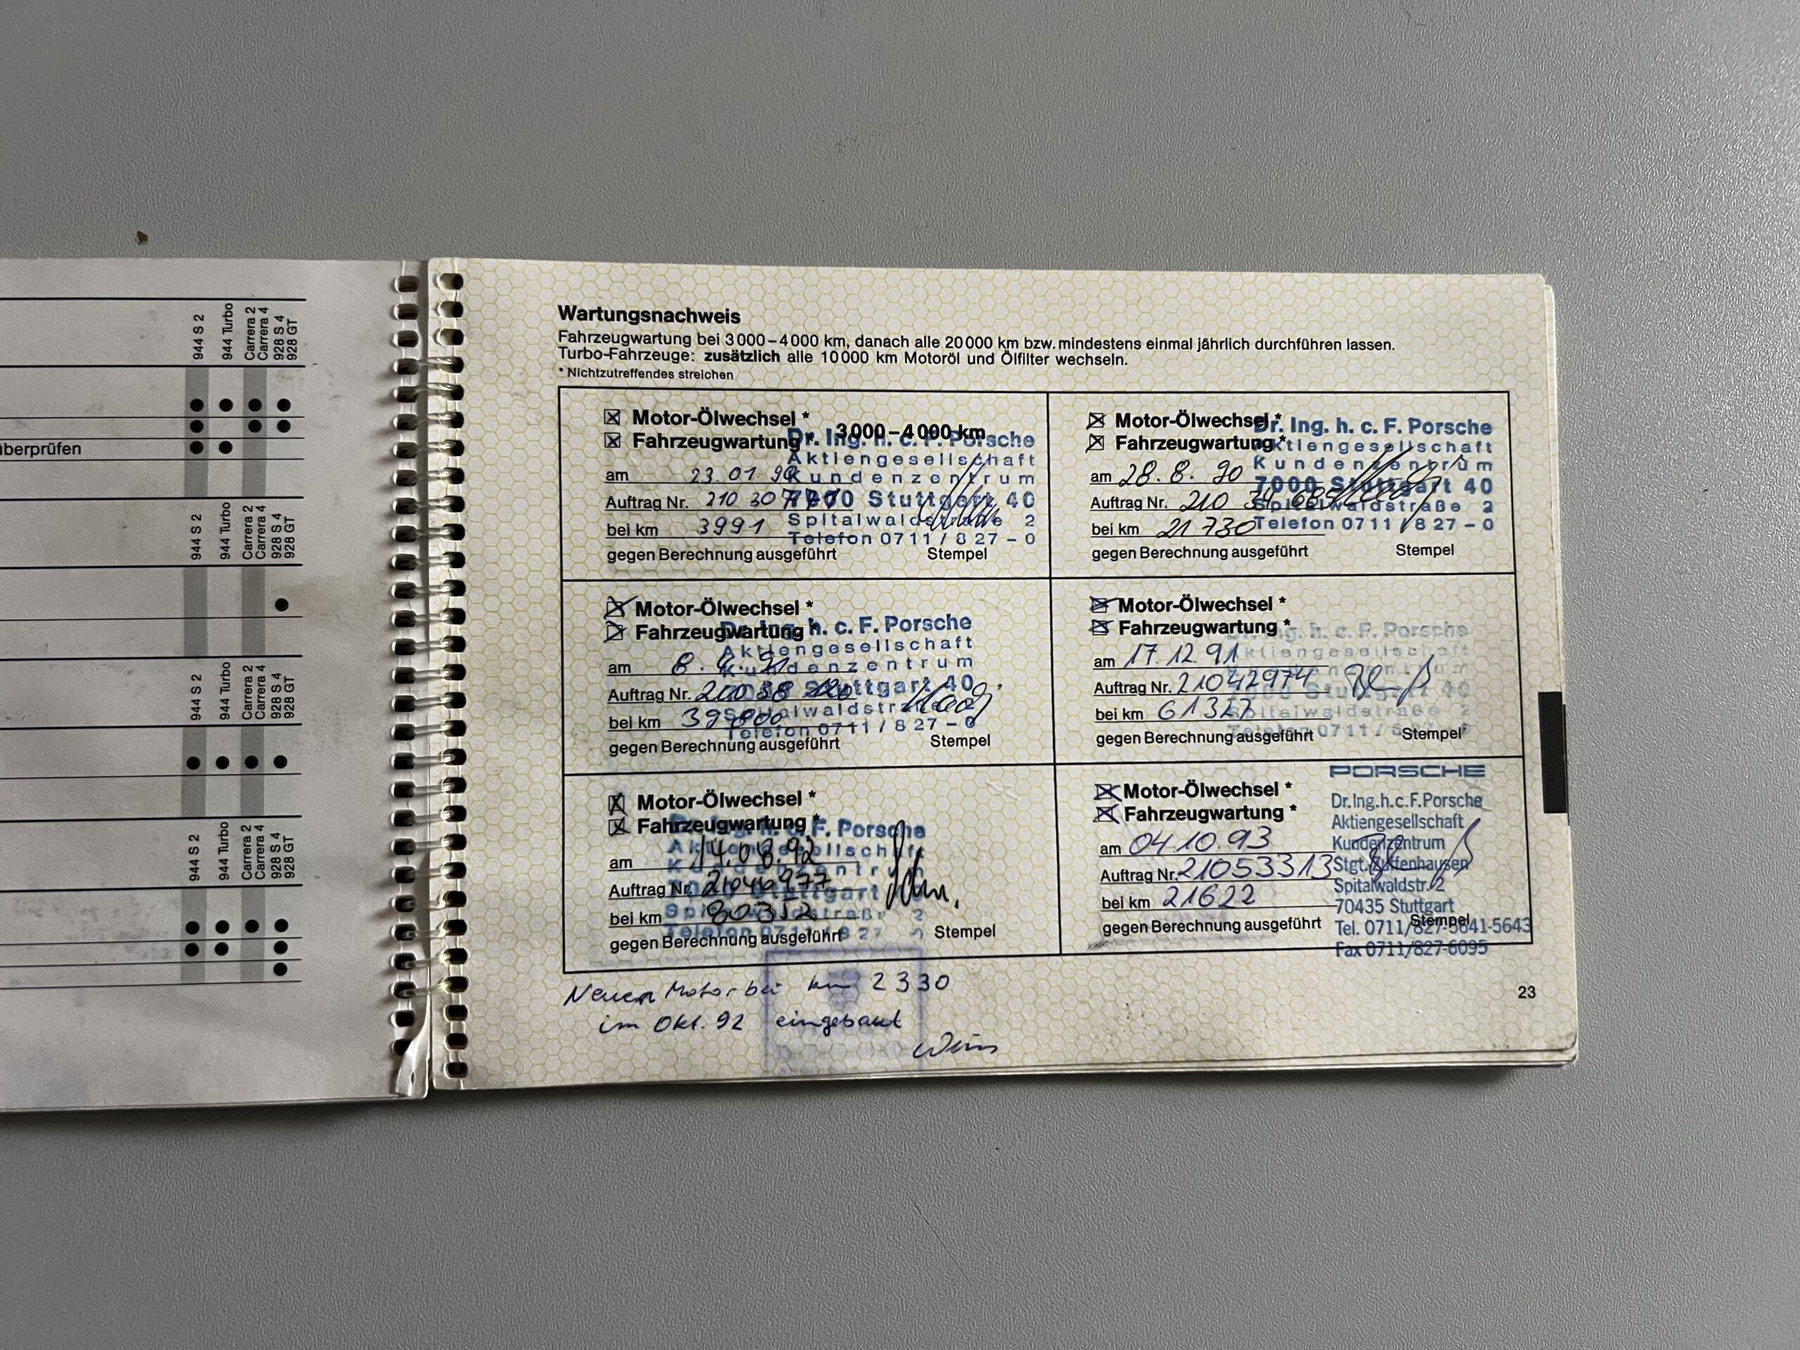 944 S 2
944 Turbo
Carrera 2
Carrera 4
928 S 4
928 GT
überprüfen
944 S 2
944 Turbo
Carrera 2
Carrera 4
928 S 4
928 GT
944 S 2
944 Turbo
Carrera 2
Carrera 4
928 S 4
928 GT
944 S 2
944 Turbo
Carrera 2
Carrera 4
928 S 4
928 GT
Wartungsnachweis
Fahrzeugwartung bei 3000–4000 km, danach alle 20000 km bzw. mindestens einmal jährlich durchführen lassen.
Turbo-Fahrzeuge: zusätzlich alle 10000 km Motoröl und Ölfilter wechseln.
* Nichtzutreffendes streichen
Motor-Ölwechsel *
Fahrzeugwartung
3000–4000 km
am 23.01.90
Auftrag Nr. 210 307
bei km 3991
gegen Berechnung ausgeführt
Stempel
Dr. Ing. h. c. F. Porsche
Aktiengesellschaft
Kundenzentrum
7000 Stuttgart 40
Spitalwaldstraße 2
Telefon 0711/827-0
Motor-Ölwechsel *
Fahrzeugwartung *
am 28.8.90
Auftrag Nr. 210
bei km 21730
gegen Berechnung ausgeführt
Stempel
Dr. Ing. h. c. F. Porsche
Aktiengesellschaft
Kundenzentrum
7000 Stuttgart 40
Spitalwaldstraße 2
Telefon 0711/827-0
Motor-Ölwechsel *
Fahrzeugwartung *
am
Auftrag Nr.
bei km
gegen Berechnung ausgeführt
Stempel
Dr. Ing. h. c. F. Porsche
Aktiengesellschaft
Kundenzentrum
7000 Stuttgart 40
Spitalwaldstraße 2
Telefon 0711/827-0
Motor-Ölwechsel *
Fahrzeugwartung *
am 17.12.91
Auftrag Nr. 21042974
bei km 61327
gegen Berechnung ausgeführt
Stempel
Dr. Ing. h. c. F. Porsche
Aktiengesellschaft
Kundenzentrum
7000 Stuttgart 40
Spitalwaldstraße 2
Telefon 0711/827
Motor-Ölwechsel *
Fahrzeugwartung *
am 14.08.92
Auftrag Nr. 21046977
bei km 80352
gegen Berechnung ausgeführt
Stempel
Dr. Ing. h. c. F. Porsche
Aktiengesellschaft
Kundenzentrum
7000 Stuttgart
Spitalwaldstraße 2
Telefon 0711/827
Motor-Ölwechsel *
Fahrzeugwartung *
am 04.10.93
Auftrag Nr. 21053313
bei km 21622
gegen Berechnung ausgeführt
Stempel
PORSCHE
Dr.Ing.h.c.F.Porsche
Aktiengesellschaft
Kundenzentrum
Stgt.-Zuffenhausen
Spitalwaldstr. 2
70435 Stuttgart
Tel. 0711/827-5641-5643
Fax 0711/827-6095
Neuer Motor bei km 2330
im Okt. 92 eingebaut
23